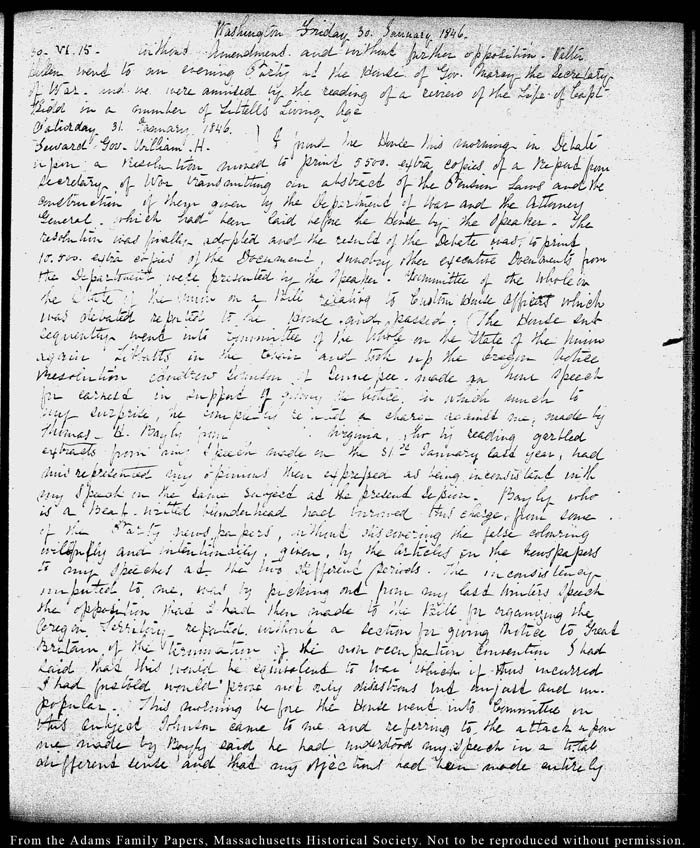 Washington Friday 30. January 1846.
30. VI. 15. without Amendment and without further opposition. Walter
Helen went to an evening Party at the House of Gov. Marcy the Secretary
of War. and we were amused by the reading of a review of the Life of Capt
Kidd in a number of Littells Living Age
Saturday 31. January 1846.
Seward. Gov. William. H. } I found the House this morning in Debate
upon a Resolution moved to print 5500. extra copies of a Report from
Secretary of War transmitting an abstract of the Pension Laws and the
construction of them given by the Department of War and the Attorney
General which had been laid before the House by the Speaker. The
resolution was finally adopted and the result of the Debate was, to print
10.500. extra copies of the Document, sundry other executive Documents from
the Department were presented by the Speaker. Committee of the whole on
the State of the union on a Bill relating to Custom House officers which
was debated reported to the House and passed. The House sub
sequently went into Committee of the Whole on the State of the Union
again Tibbatts in the Chair and took up the Oregon Notice
Resolution Andrew Johnson of Tennessee made an hour speech
for earnest in support of giving the notice, in which much to
my surprise, he completely refuted a charge against me, made by
Thomas H. Bayly from Virginia, who by reading garbled
extracts from my Speech made on the 31st January last year, had
misrepresented my opinions then expressed as being inconsistent with
my Speech on the same Subject at the present session. Bayly who
is a Beau-witted blunderhead had borrowed this charge, from some
of the Party newspapers, without discovering the false colouring
wilfully and intentionally, given, by the articles in the Newspapers
to my Speeches at the two different periods. The inconsistency
imputed to me, was by picking out from my last winters Speech
the opposition that I had then made to the Bill for organizing the
Oregon Territory reported without a section for giving Notice to Great
Britain of the termination of the non occupation Convention I had
said that this would be equivalent to War which if thus incurred
I had foretold would prove not only disastrous but unjust and un-
popular. This morning before the House went into Committee on
this subject Johnson came to me and referring to the attack upon
me made by Bayly said he had understood my speech in a total
different sense and that my objections had been made entirely
From the Adams Family Papers, Massachusetts Historical Society. Not to be reproduced without permission.